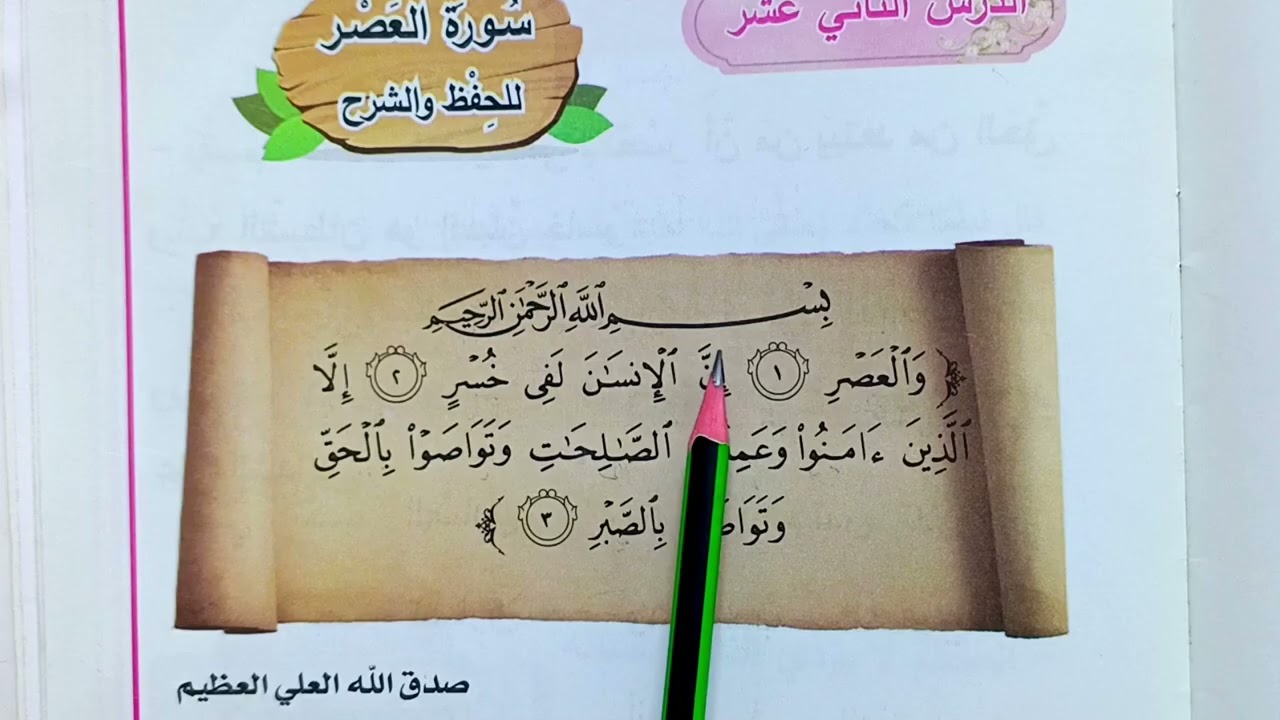 الدرس الثاني عشر
سُورَةُ العَصْر
للحِفْظ والشرح
بِسْمِ ٱللَّهِ ٱلرَّحْمَٰنِ ٱلرَّحِيمِ
﴿ وَٱلْعَصْرِ ١ إِنَّ ٱلْإِنسَٰنَ لَفِى خُسْرٍ ٢ إِلَّا
ٱلَّذِينَ ءَامَنُوا۟ وَعَمِلُوا۟ ٱلصَّٰلِحَٰتِ وَتَوَاصَوْا۟ بِٱلْحَقِّ
وَتَوَاصَوْا۟ بِٱلصَّبْرِ ٣ ﴾
صدق الله العلي العظيم